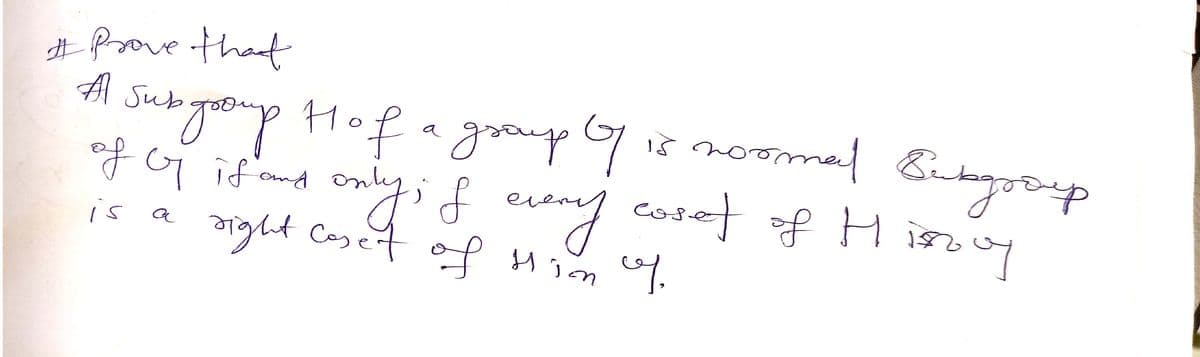 # Prove that
A Subgroup H of a group G is normal Subgroup
of G if and only if every coset of H in G
is a right Coset of H in G.